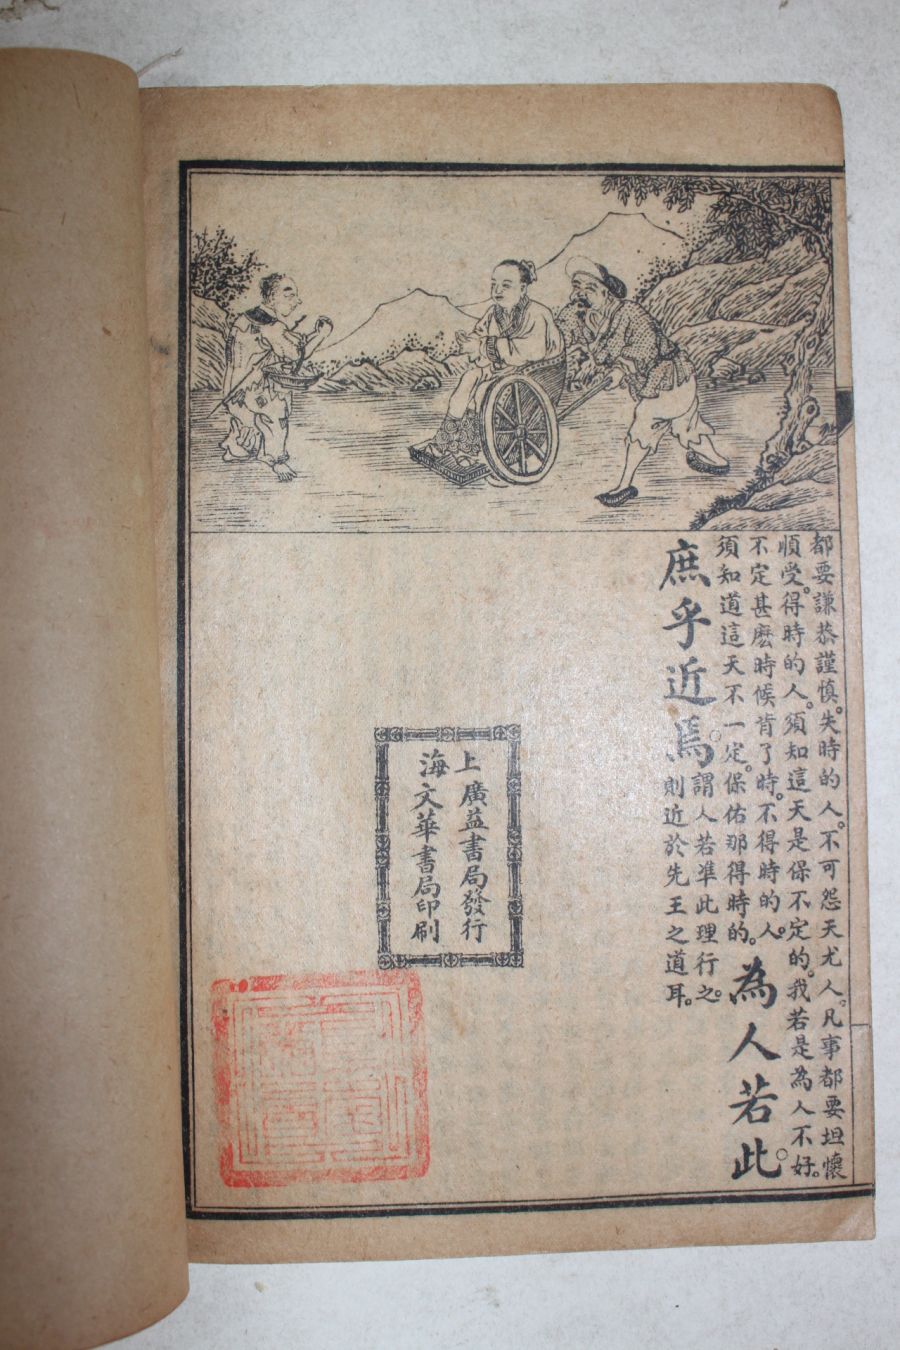 都要謙恭謹慎。失時的人。不可怨天尤人。凡事都要坦懷
順受。得時的人。須知這天是保不定的。我若是為人不好。
不定甚麽時候背了時。不得時的人。
須知道這天不一定。保佑那得時的。
為人若此。
庶乎近焉。
謂人若準此理行之。
則近於先王之道耳。
上海
廣益書局發行
文華書局印刷